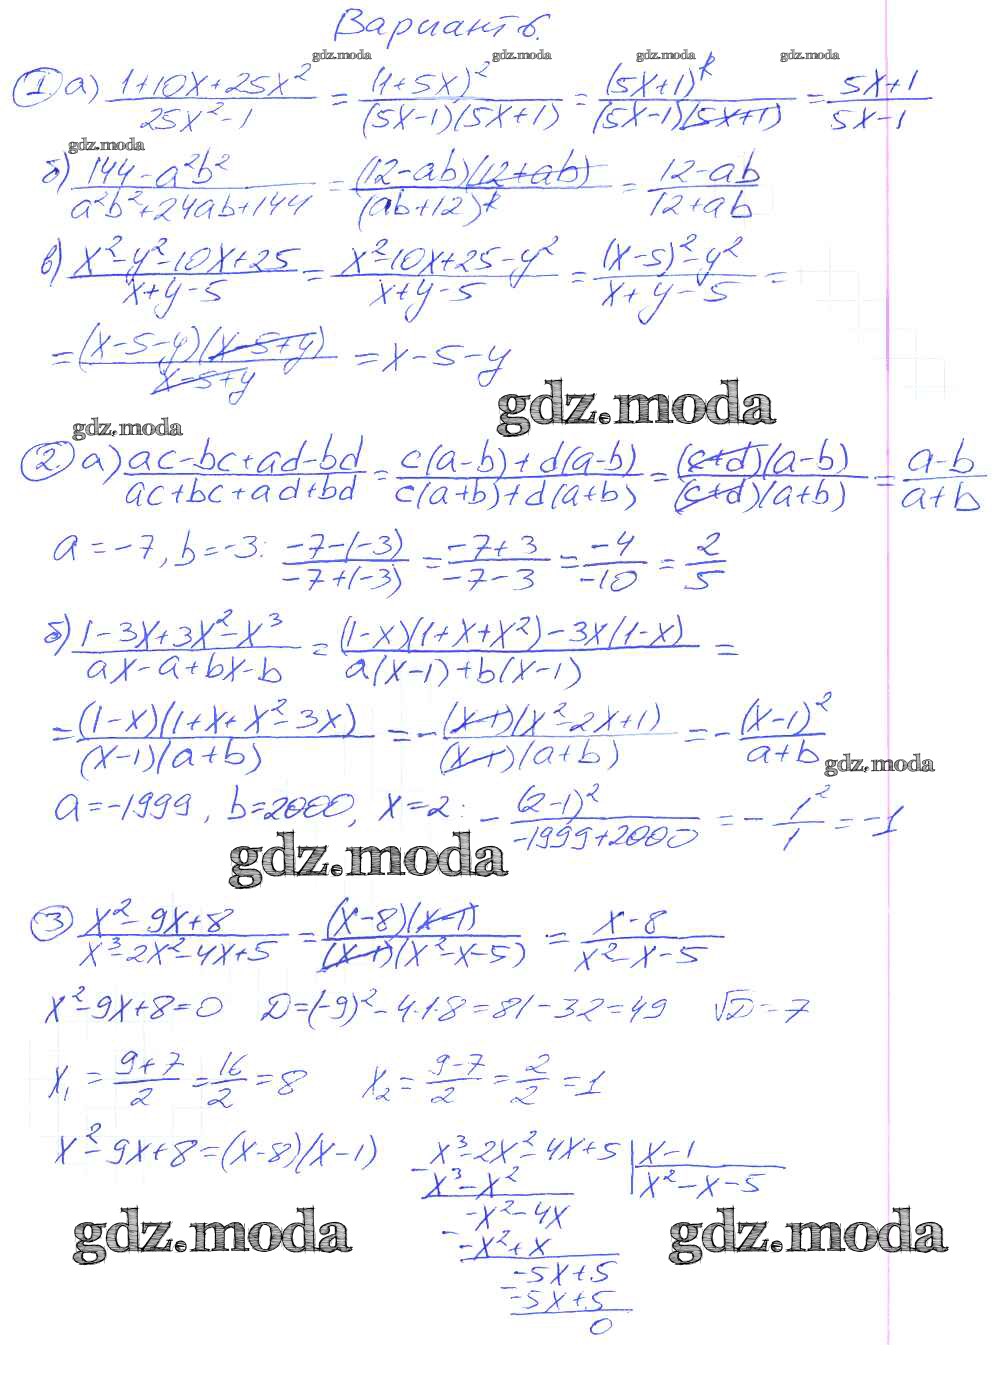 Вариант 6.
gdz.moda gdz.moda gdz.moda gdz.moda
① а) (1+10x+25x²)/(25x²-1) = (1+5x)²/((5x-1)(5x+1)) = (5x+1)²/((5x-1)(5x+1)) = (5x+1)/(5x-1)
gdz.moda
б) (144-a²b²)/(a²b²+24ab+144) = ((12-ab)(12+ab))/(ab+12)² = (12-ab)/(12+ab)
в) (x²-y²-10x+25)/(x+y-5) = (x²-10x+25-y²)/(x+y-5) = ((x-5)²-y²)/(x+y-5) =
= ((x-5-y)(x-5+y))/(x-5+y) = x-5-y
gdz.moda
gdz.moda
② а) (ac-bc+ad-bd)/(ac+bc+ad+bd) = (c(a-b)+d(a-b))/(c(a+b)+d(a+b)) = ((c+d)(a-b))/((c+d)(a+b)) = (a-b)/(a+b)
a=-7, b=-3: (-7-(-3))/(-7+(-3)) = (-7+3)/(-7-3) = (-4)/(-10) = 2/5
б) (1-3x+3x²-x³)/(ax-a+bx-b) = ((1-x)(1+x+x²)-3x(1-x))/(a(x-1)+b(x-1)) =
= ((1-x)(1+x+x²-3x))/((x-1)(a+b)) = - ((x-1)(x²-2x+1))/((x-1)(a+b)) = - (x-1)²/(a+b)
gdz.moda
a=-1999, b=2000, x=2: - (2-1)²/(-1999+2000) = - 1²/1 = -1
gdz.moda
③ (x²-9x+8)/(x³-2x²-4x+5) = ((x-8)(x-1))/((x-1)(x²-x-5)) = (x-8)/(x²-x-5)
x²-9x+8=0 D=(-9)²-4·1·8=81-32=49 √D=7
x₁ = (9+7)/2 = 16/2 = 8 x₂ = (9-7)/2 = 2/2 = 1
x²-9x+8=(x-8)(x-1) x³-2x²-4x+5 | x-1
- x³-x² x²-x-5
-x²-4x
- -x²+x
-5x+5
- -5x+5
0
gdz.moda gdz.moda